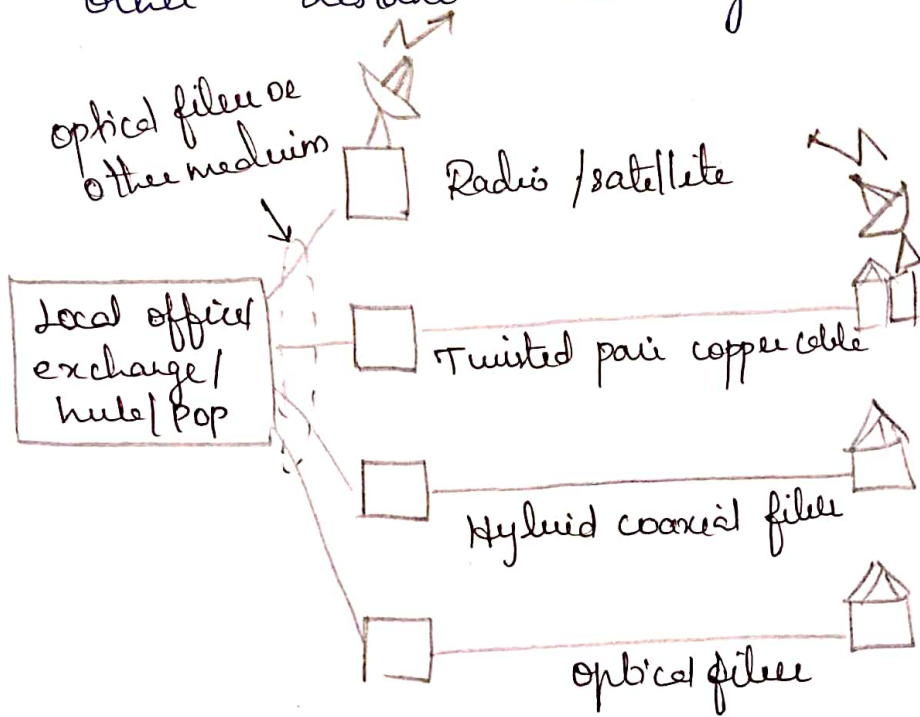 other
optical fiber or
other meduim
Radio /satellite
Local office/
exchange/
hub/ POP
Twisted pair copper cable
Hybrid coaxial fiber
optical fiber